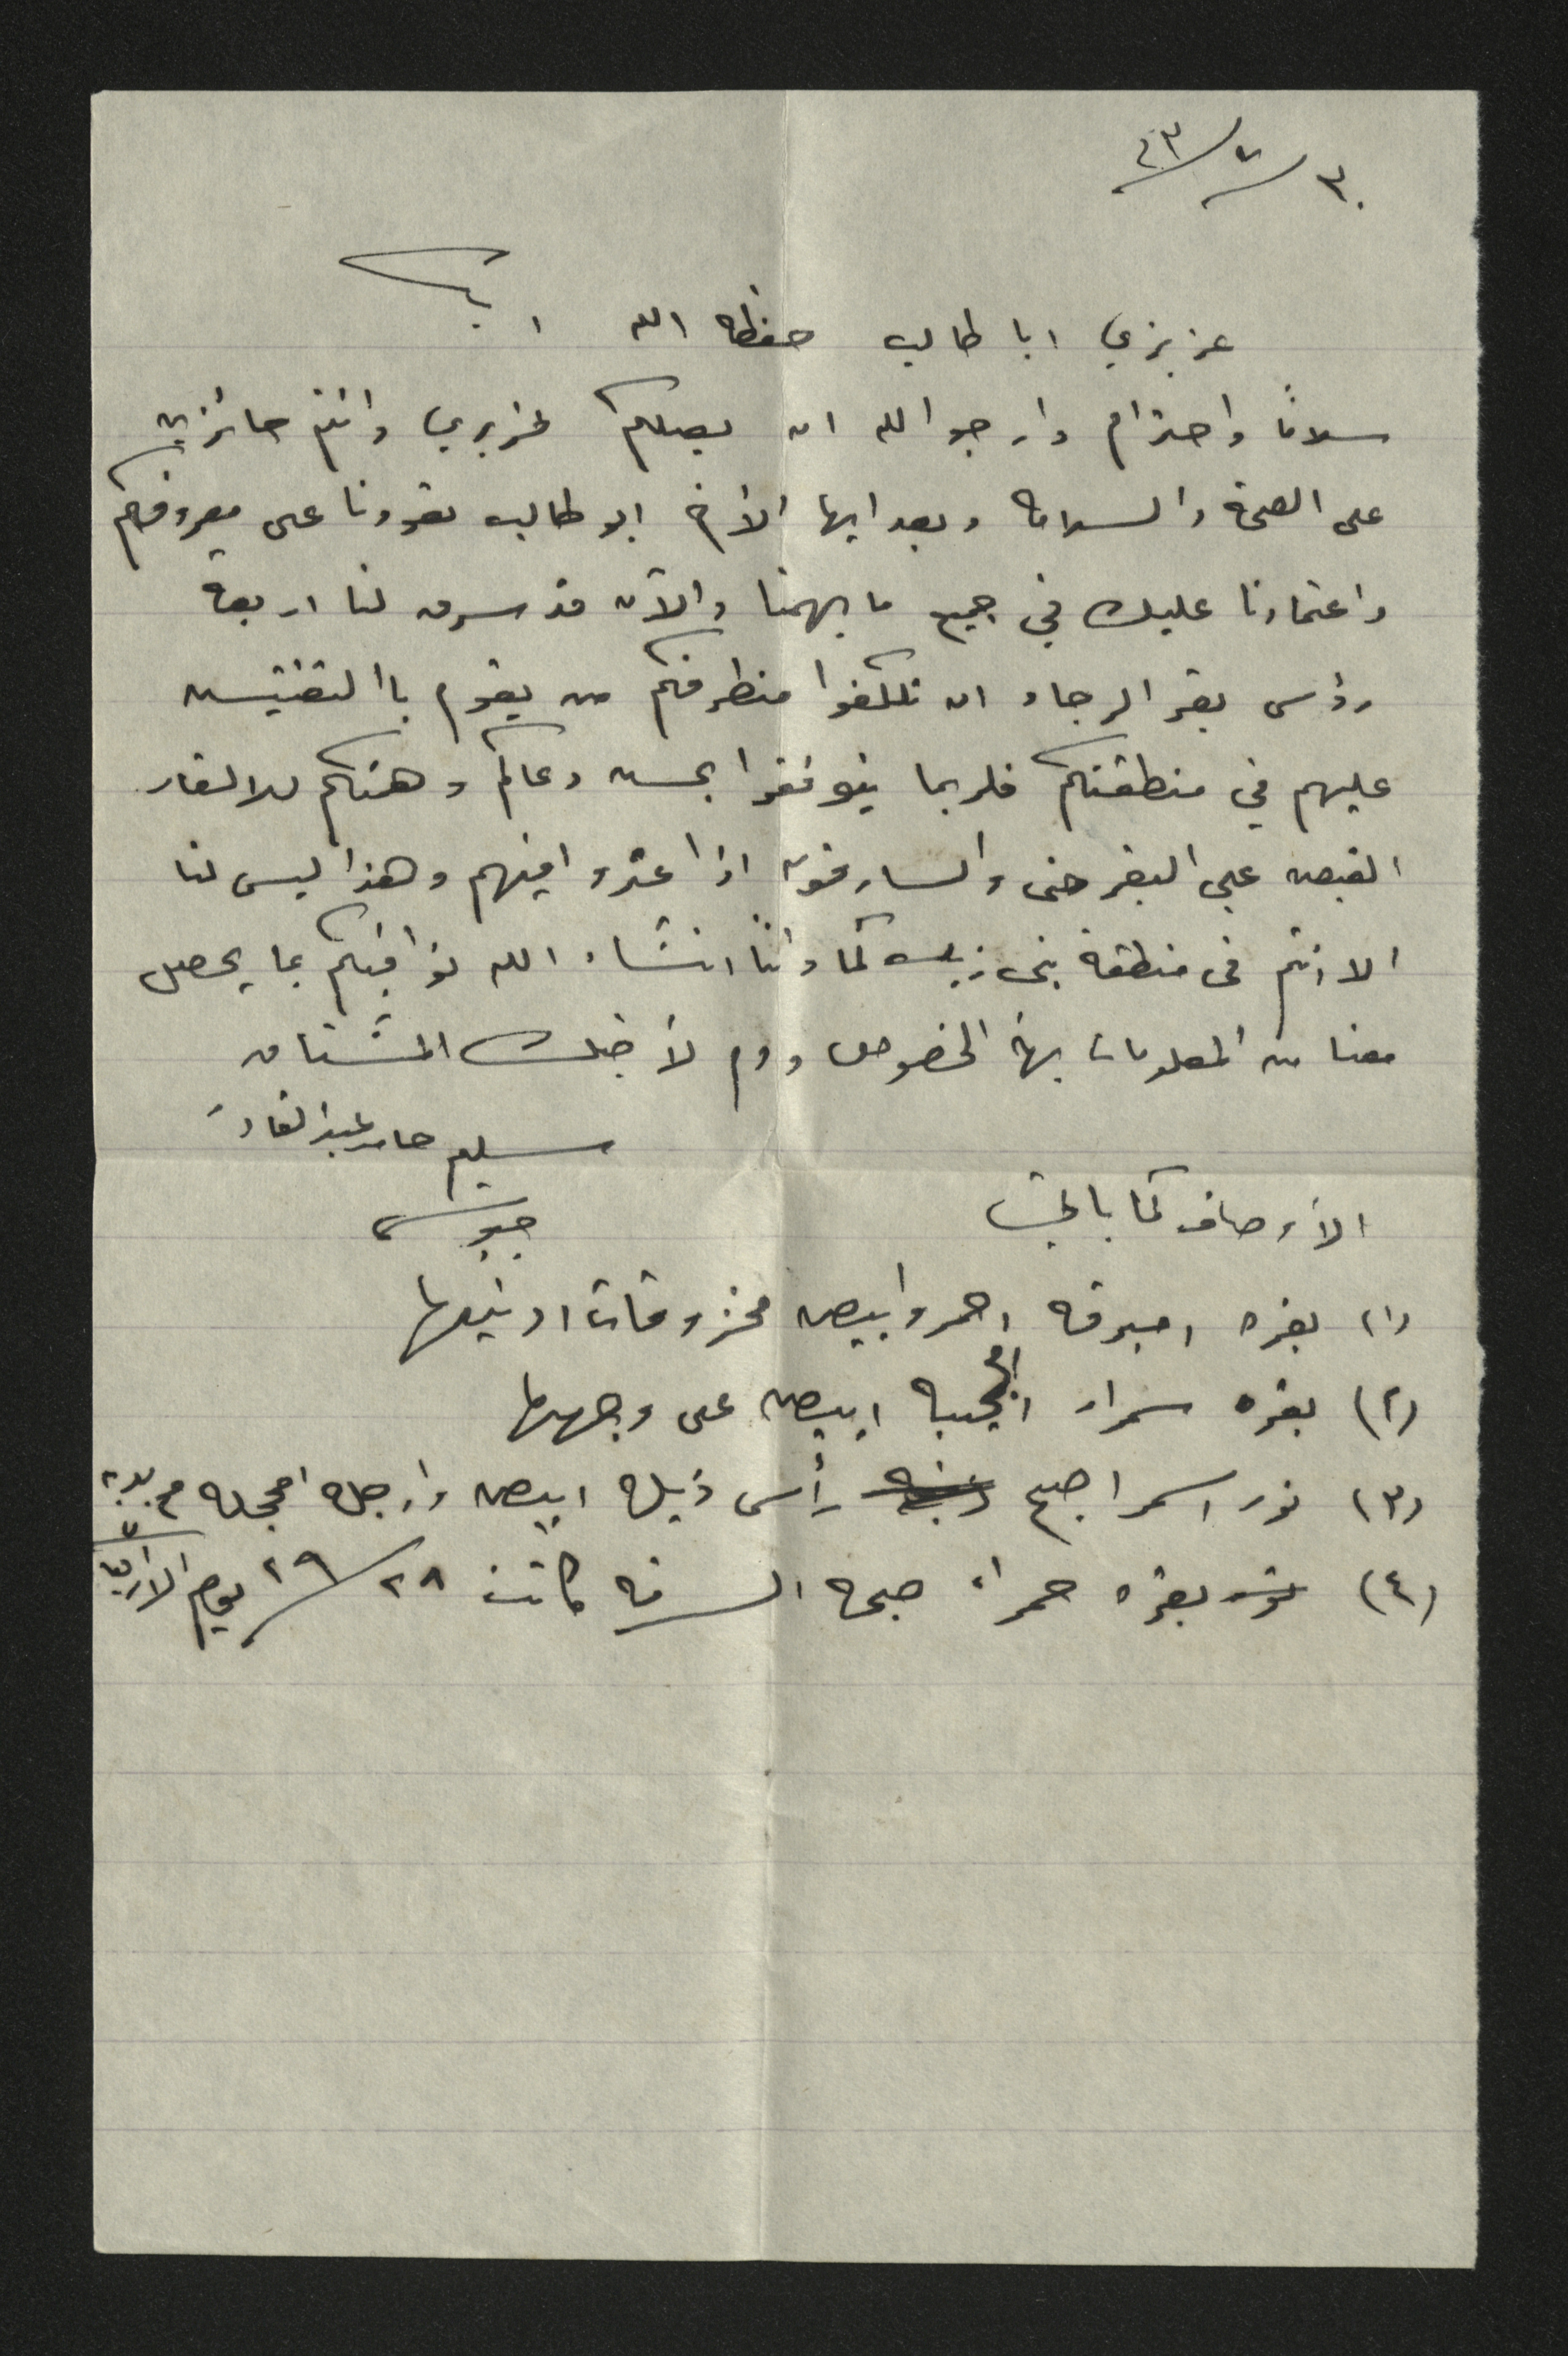 ٣٠/٧/٤٣
عزيزي ابا طالب حفظه الله
سلاماً واحترام وارجو الله ان يصلكم تحريري وانتم حائزين
على الصحة والسلامه وبعد ايها الأخ ابو طالب تعودنا على معروفكم
واعتمادنا عليك في جميع ما يهمنا والآن قد سرق لنا اربعة
رؤس بقر الرجاء ان تكلفوا منطرفكم من يقوم باالتفتيش
عليهم في منطقتكم فلربما يتوفقوا بحسن دعاكم وهمتكم للالقاء
القبض على البقر حتى والسارقون اذا عثروا فيهم وهذا ليس لنا
الا انتم في منطقة بني زيد كما واننا انشاء الله نوافيكم بما يحصل
معنا من المعلومات بهذا الخصوص ودم لأخيك المشتاق
سليم حامد عبد القادر
جيوسي
الأوصاف كما يأتي
(١) بقره امبرقه احمر وابيض مخزوقات ادينيها
(٢) بقره سمراء ابيض على وجهها
(٣) ثور اسمر اصبح رأس ذيله ابيض وارجله امحجله
(٤) بقره حمراء صبحه السرقه كانت ٢٨/٢٩ يوم الاربعا